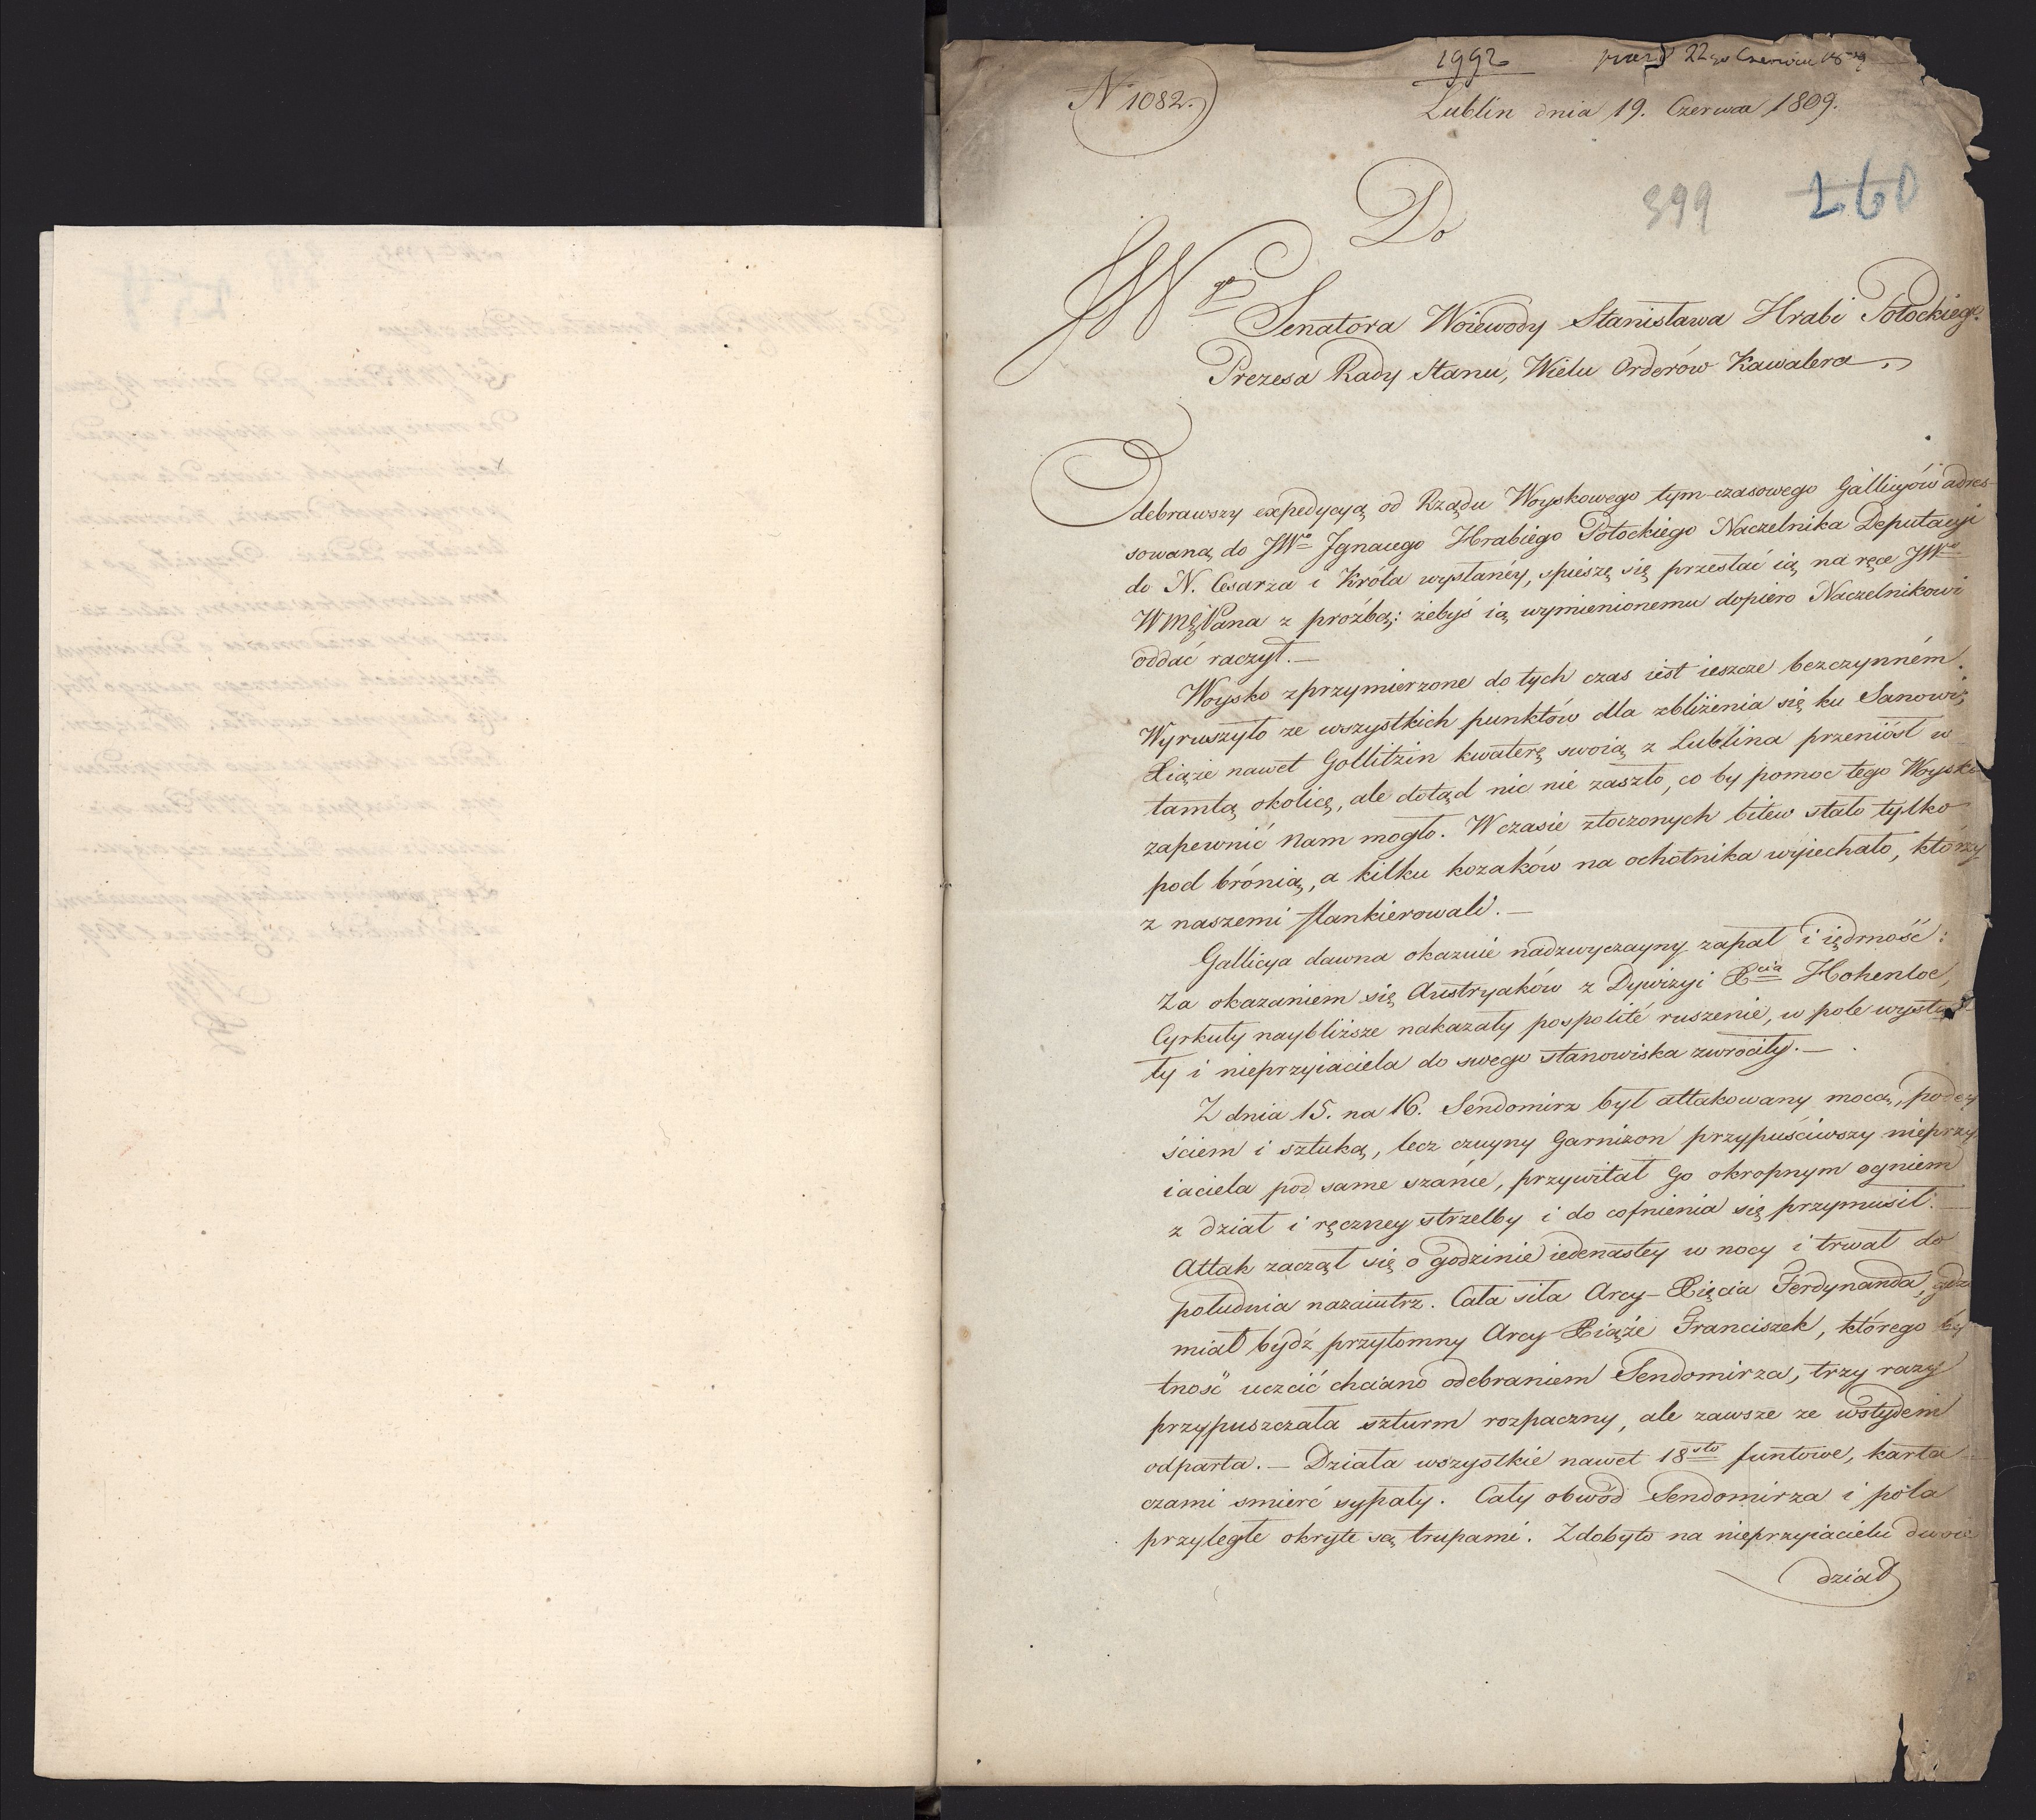 1992
22go Czerwca 1809
N 1082.
Lublin dnia 19. Czerwca 1809.
399 260
Do
JWgo
Senatora Woiewody Stanisława Hrabi Potockiego.
Prezesa Rady Stanu, Wielu Orderów Kawalera.
Odebrawszy expedycyą od Rządu Woyskowego tym-czasowego Gallicyów adres-
sowaną do JWo Jgnacego Hrabiego Potockiego Naczelnika Deputacyi
do N. Cesarza i Króla wysłanéy, spieszę się przesłać ią na ręce JWo
WMę Pana z proźbą: żebyś ią wymienionemu dopiero Naczelnikowi
oddać raczył.—
Woysko zprzymierzone do tych czas iest ieszcze bezczynném.
Wyruszyło ze wszystkich punktów dla zbliżenia się ku Sanowi;
Xiąże nawet Gollitzin kwaterę swoią z Lublina przeniósł w
tamtą okolicę, ale dotąd nic nie zaszło, co by pomoc tego Woyska
zapewnić Nam mogło. W czasie stoczonych bitew stało tylko
pod brónią, a kilku kozaków na ochotnika wyiechało, którzy
z naszemi flankierowali.—
Gallicya dawna okazuie nadzwyczayny zapał i iędrność:
Za okazaniem się Austryaków z Dywizyi Xcia Hohenloe,
Cyrkuły naybliższe nakazały pospolité ruszenie, w pole wystąpi-
ły i nieprzyiaciela do swego stanowiska zwrociły.—
Z dnia 15. na 16. Sendomirz był attakowany mocą, podey
ściem i sztuką, lecz czuyny Garnizon przypuściwszy nieprzy
iaciela pod same szańce, przywitał Go okropnym ogniem
z dział i ręczney strzelby i do cofnienia się przymusił.—
Attak zaczął się o godzinie iedenastey w nocy i trwał do
południa nazaiutrz. Cała siła Arcy-Xięcia Ferdynanda, gdzie
miał bydź przytomny Arcy-Xiąże Franciszek, którego by
tność uczcić chciano odebraniem Sendomirza, trzy razy
przypuszczała szturm rozpaczny, ale zawsze ze wstydem
odparta.— Działa wszystkie nawet 18sto funtowe, karta-
czami smierć sypały. Cały obwód Sendomirza i pola
przyległe okryte są trupami. Zdobyto na nieprzyiacielu dwoie
dział